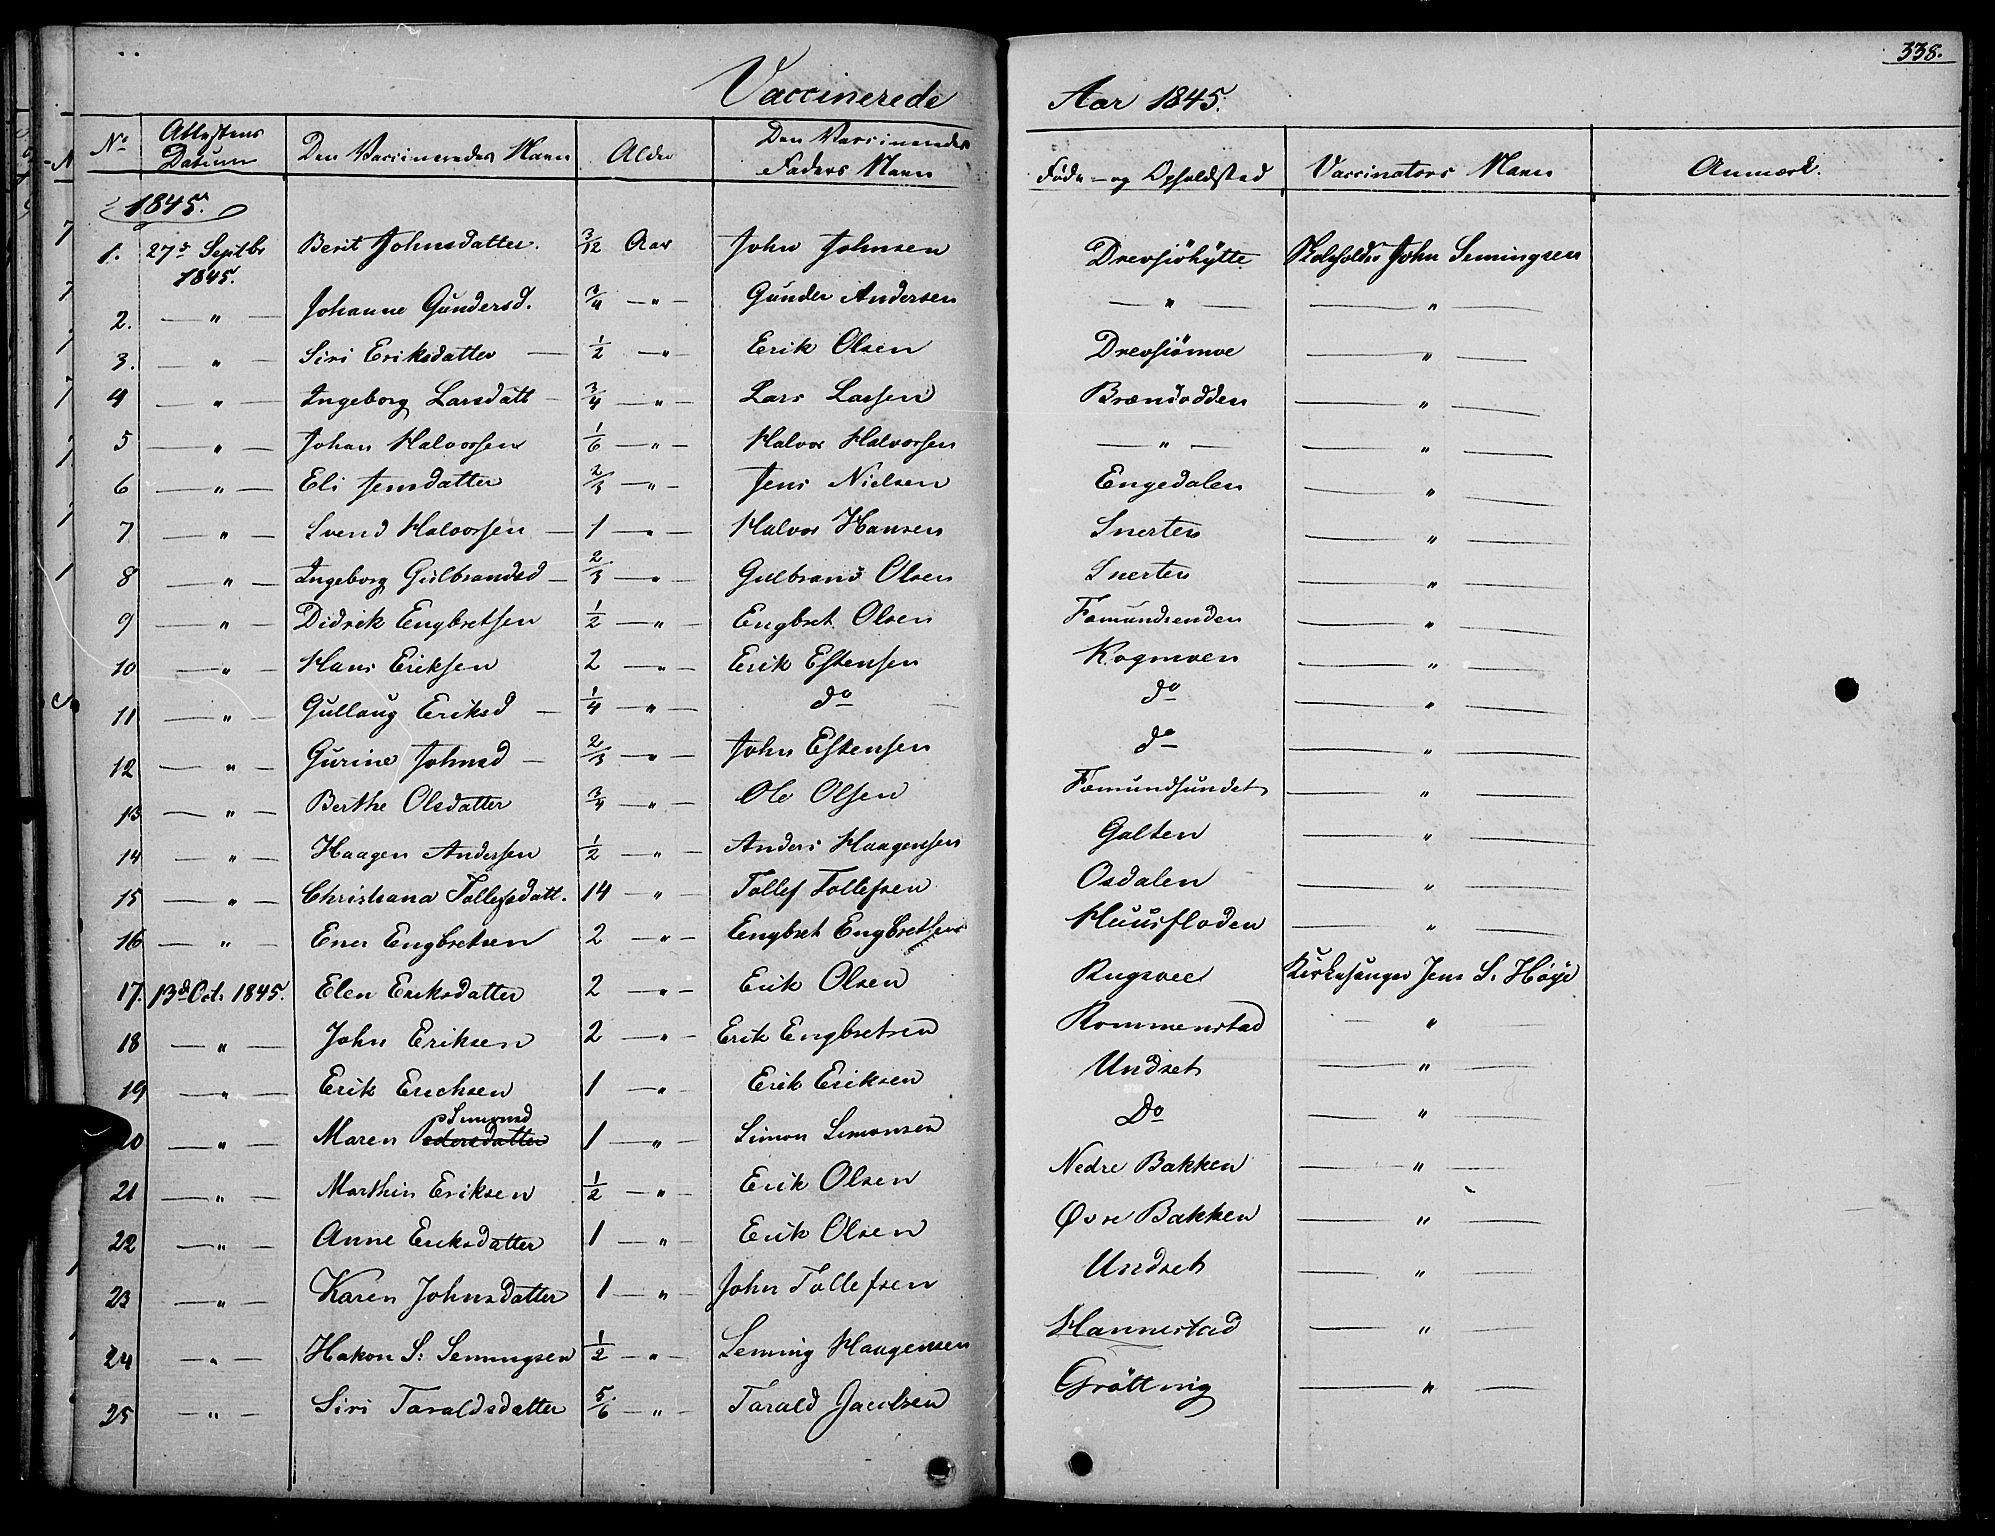 338.
Vaccinerede Aar 1845.
No Attestens Datum Den Vaccineredes Navn Alder Den Vaccineredes Faders Navn Føde- og Opholdsted Vaccinators Navn Anmærk.
1845.
1. 27de Septbr 1845. Berit Johnsdatter. 3/12 Aar John Johnsen Drevsjöhytte Skoleholder John Semingsen
2. — " — Johanne Gundersd. 3/4 — " — Gunder Andersen — " — — " —
3. — " — Siri Eriksdatter — 1/2 — " Erik Olsen Drevsiömoe — " —
4 — " — Ingeborg Larsdatt — 3/4 — " — Lars Larsen Brændodden — " —
5 — " — Johan Halvorsen 1/6 — " — Halvor Halvorsen — " — — " —
6 — " — Eli Jensdatter 2/3 — " — Jens Nielsen Engedalen — " —
7 — " — Svend Halvorsen — 1 — " — Halvor Hansen Snerten — " —
8 — " — Ingeborg Gulbrandsd — 2/3 — " — Gulbrand Olsen Snerten — " —
9 — " — Didrik Engbretsen 1/2 — " — Engbret Olsen Fæmundsenden — " —
10 — " — Hans Eriksen 2 — " Erik Estensen Rogmoen — " —
11 — " — Gullaug Eriksd — 1/4 — " — do do — " —
12 — " — Gurine Johnsd — 2/3 — " — John Estensen do — " —
13 — " — Berthe Olsdatter 3/4 — " — Ole Olsen Fæmundsundet — " —
14 — " — Haagen Andersen 1/2 — " — Anders Haagensen Galten — " —
15 — " — Christiana Tollefsdatt. 14 — " — Tollef Tollefsen Osdalen — " —
16 — " — Ener Engbretsen 2 — " — Engbret Engbretsen Huusfloden — " —
17. 13d Oct. 1845. Elen Eriksdatter 2 — " — Erik Olsen Rugsvee Kirkesanger Jens S. Höye
18 — " — John Eriksen 2 — " — Erik Engbretsen Rommenstad — " —
19 — " — Erik Erichsen 1 — " Erik Eriksen Undset — " —
20 — " — Maren Pedersdatter Simonsd 1 — " Simon Simonsen Do — " —
21 — " — Marthin Eriksen 1/2 — " — Erik Olsen Nedre Bakken — " —
22 — " — Anne Eriksdatter 1 — " — Erik Olsen Øvre Bakken — " —
23 — " — Karen Johnsdatter 1 — " John Tollefsen Undset — " —
24 — " — Hakon S. Semingsen 1/2 — " — Seming Haagensen Hannestad — " —
25 — " — Siri Taraldsdatter 5/6 — " — Tarald Jacobsen Gröttnig — " —